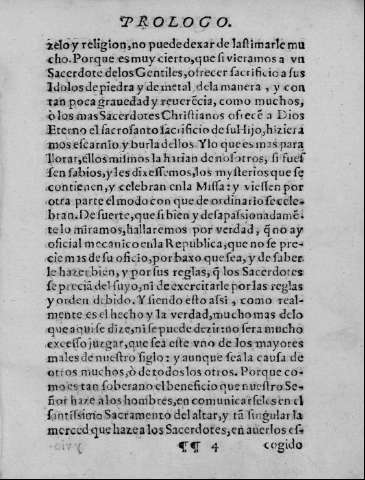 PROLOGO.
zelo y religion, no puede dexar de lastimarle mu
cho. Porque es muy cierto, que si vieramos a vn
Sacerdote delos Gentiles, ofrecer sacrificio a sus
Idolos de piedra y de metal, dela manera, y con
tan poca grauedad y reuerēcia, como muchos,
ò los mas Sacerdotes Christianos ofrecē a Dios
Eterno el sacrosanto sacrificio de su Hijo, hiziera
mos escarnio y burla dellos. Y lo que es mas para
llorar, ellos mismos la harian de nosotros, si fues
sen sabios, y les dixessemos, los mysterios que se
contienen, y celebran en la Missa: y viessen por
otra parte el modo con que de ordinario se cele-
bran. De suerte, que si bien y desapassionadamē-
te lo miramos, hallaremos por verdad, q̃ no ay
oficial mecanico en la Republica, que no se pre-
cie mas de su oficio, por baxo que sea, y de saber
le hazer bien, y por sus reglas, q̃ los Sacerdotes
se preciā del suyo, ni de exercitarle por las reglas
y orden debido. Y siendo esto assi, como real-
mente es el hecho y la verdad, mucho mas delo
que aqui se dize, ni se puede dezir: no sera mucho
excesso juzgar, que sea este vno de los mayores
males de nuestro siglo: y aunque sea la causa de
otros muchos, ò de todos los otros. Porque co-
mo es tan soberano el beneficio que nuestro Se-
ñor haze a los hombres, en comunicarseles en el
santissimo Sacramento del altar, y tā singular la
merced que haze a los Sacerdotes, en auerlos es-
¶¶ 4 cogido